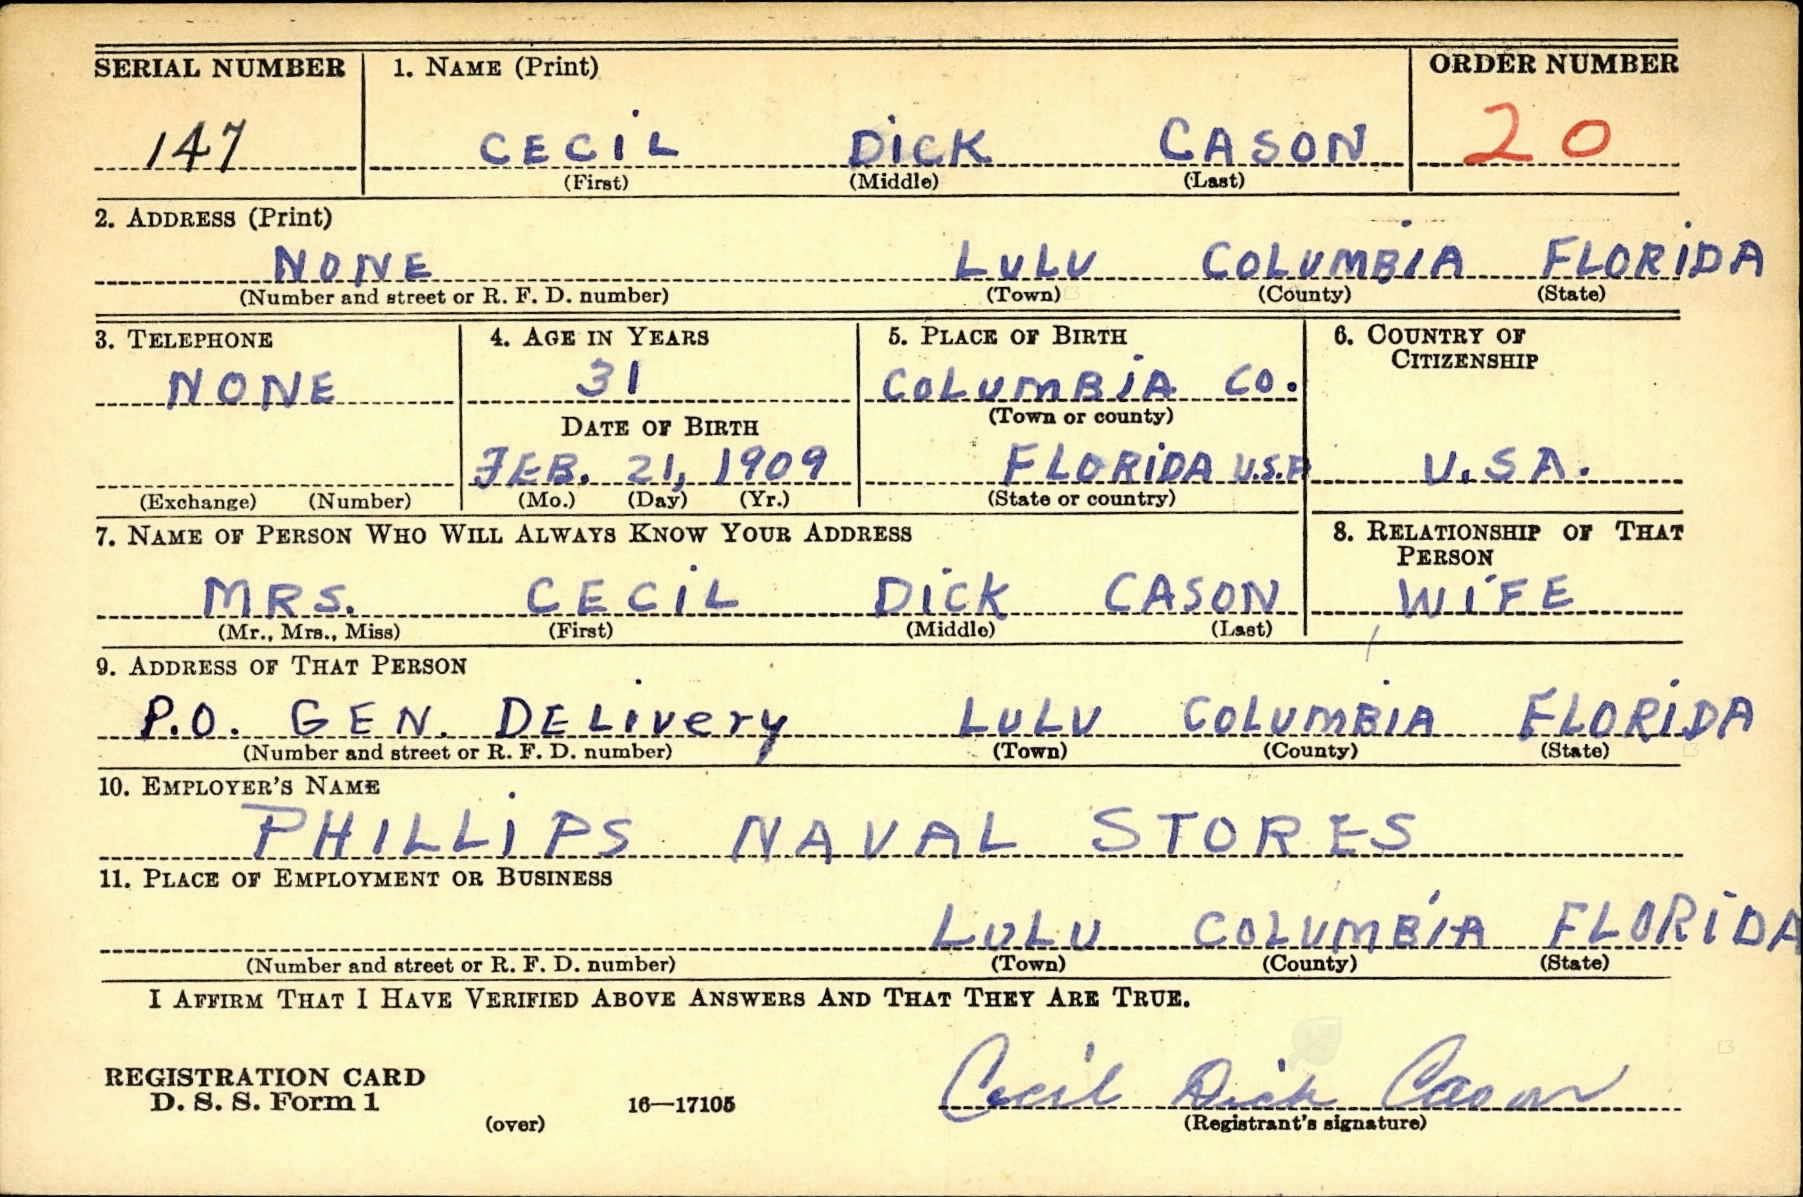 SERIAL NUMBER 1. NAME (Print) ORDER NUMBER
147 CECIL DICK CASON 20
(First) (Middle) (Last)
2. ADDRESS (Print)
NONE LULU COLUMBIA FLORIDA
(Number and street or R. F. D. number) (Town) (County) (State)
3. TELEPHONE 4. AGE IN YEARS 5. PLACE OF BIRTH 6. COUNTRY OF
CITIZENSHIP
NONE 31 COLUMBIA CO.
(Town or county)
DATE OF BIRTH
FEB. 21, 1909 FLORIDA U.S.A U.SA.
(Exchange) (Number) (Mo.) (Day) (Yr.) (State or country)
7. NAME OF PERSON WHO WILL ALWAYS KNOW YOUR ADDRESS 8. RELATIONSHIP OF THAT
PERSON
MRS. CECIL DICK CASON WIFE
(Mr., Mrs., Miss) (First) (Middle) (Last)
9. ADDRESS OF THAT PERSON
P.O. GEN. DELivery LULU COLUMBIA FLORIDA
(Number and street or R. F. D. number) (Town) (County) (State)
10. EMPLOYER'S NAME
PHILLIPS NAVAL STORES
11. PLACE OF EMPLOYMENT OR BUSINESS
LULU COLUMBIA FLORIDA
(Number and street or R. F. D. number) (Town) (County) (State)
I AFFIRM THAT I HAVE VERIFIED ABOVE ANSWERS AND THAT THEY ARE TRUE.
REGISTRATION CARD
D. S. S. Form 1 16—17105 Cecil Dick Cason
(over) (Registrant's signature)